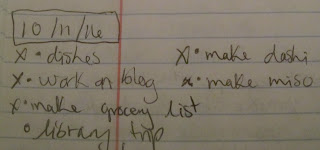 10/11/16
x • dishes
x • work on blog
x • make grocery list
• library trip
x • make dashi
x • make miso